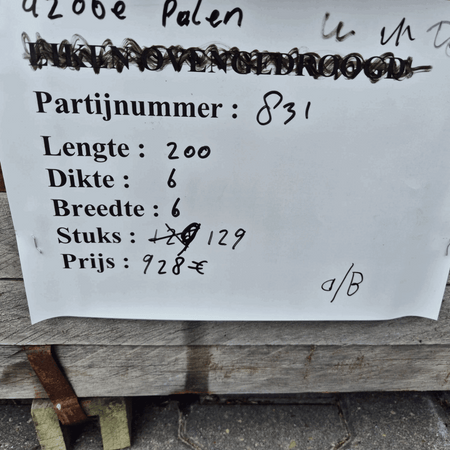 Palen
EIKEN OVENGEDROOGD
Partijnummer : 831
Lengte : 200
Dikte : 6
Breedte : 6
Stuks : 129
Prijs : 928€
a/B